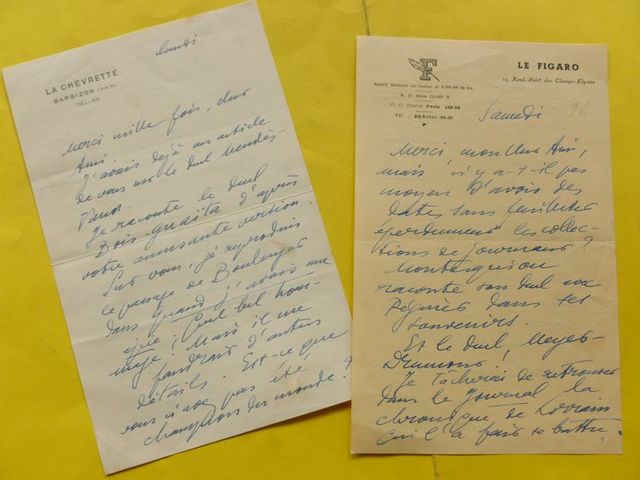 lundi
LA CHEVRETTE
BARBIZON (S&M)
TÉL: 60
Merci mille fois, cher
Ami.
J'avais déjà un article
de vous sur le duel Mendès-
Vanor.
Je raconte le duel
Bois-Guaita d'après
votre amusante version.
Sur vous, je reproduis
le passage de Boulenger
dans quand j'avais un
épée ; Quel bel hom-
mage ! Mais il me
faudrait d'autres
détails. Est-ce que
vous n'avez pas été
champion du monde ?
F
LE FIGARO
14, Rond-Point des Champs-Elysées
Société Anonyme au Capital de
R. C. Seine
C. C. Postal Paris 242-53
Tél : ELYsées 98-31
Samedi
Merci, mon cher Ami,
mais n'y a-t-il pas
moyen d'avoir des
dates sans feuilleter
éperdument les collec-
tions de journaux ?
Montesquiou
raconte son duel avec
Régnier dans ses
souvenirs.
Et le duel, Meyer-
Drumont.
Je tâcherai de retrouver
dans le journal la
chronique de Lorrain
qui l'a fait se battre.